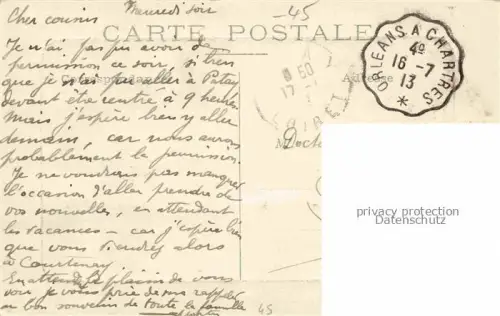 Mercredi soir
-45
Cher cousin
CARTE POSTALE
Je n'ai pas pu avoir de
permission ce soir, si bien
que je n'ai pu aller à Patay
Correspondance
Adresse
devant être rentré à 9 heures
mais j'espère bien y aller
demain, car nous aurons
probablement la permission.
Je ne voudrais pas manquer
l'occasion d'aller prendre de
vos nouvelles, en attendant
les vacances - car j'espère bien
que vous viendrez alors
à Courtenay
En attendant le plaisir de vous
voir je vous prie de me rappeler
au bon souvenir de toute la famille
ORLEANS A CHARTRES
4º
16-7
13
*
50
17
LOIRET
Docte
privacy protection
Datenschutz
45